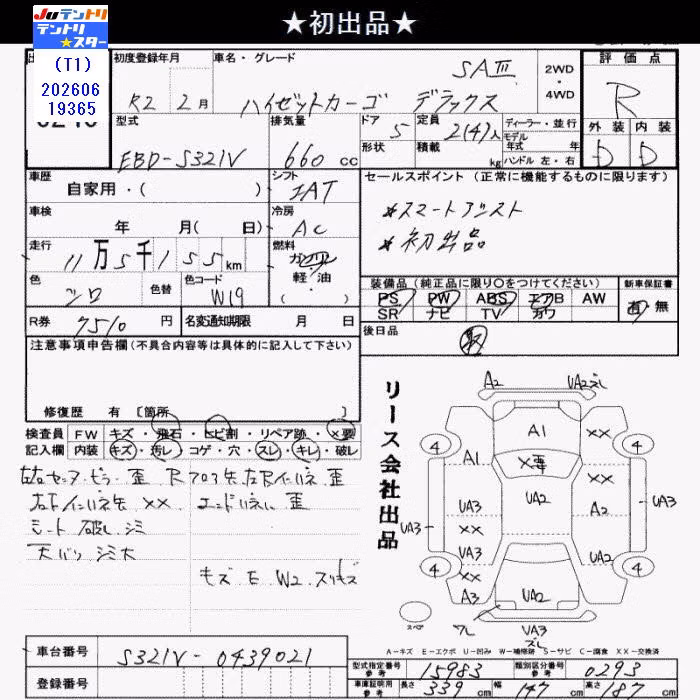 ★初出品★
JUテントリ
テントリ★スター
(T1)
202606
19365
初度登録年月
車名・グレード
評価点
R2 2月
ハイゼットカーゴ デラックス SAⅢ
2WD・4WD
R
型式
排気量
ドア
定員
ディーラー・並行
外装 内装
EBD-S321V
660cc
5
2(4)人
モデル年式 年式
D D
形状
積載 kg
ハンドル 左・右
車歴
シフト
セールスポイント(正常に機能するものに限ります)
自家用・( )
IAT
*スマートアシスト
車検
冷房
年 月( 日)
AC
*初出品
走行
燃料
11万5千155km
ガソリン
軽・油
・( )
色
色替
色コード
装備品(純正品に限り○をつけてください)
新車保証書
シロ
W19
PS PW ABS エアB AW
有 無
SR ナビ TV カワ
R券
7510円
名変通知期限 月 日
後日品
注意事項申告欄(不具合内容等は具体的に記入して下さい)
修復歴 有 [箇所 ]
検査員
FW
キズ・飛石・ヒビ割・リペア跡・×要
記入欄
内装
キズ・汚レ・コゲ・穴・スレ・キレ・破レ
シート 破レ シミ
天バリ シミ大
キズ E W2 スリキズ
リース会社出品
A2
UA2ズレ
A1
××
4
4
A1
×要
UA3
UA2
A2
UA3
UA3
××
UA3
××
××
4
4
A3
UA2
スペア
ワレ
UA3
ズレ
A-キズ E-エクボ U-凹み W-補修跡 S-サビ C-腐食 XX-交換済
車台番号
S321V-0439021
登録番号
型式指定番号 参考
15983
類別区分番号 参考
0293
車庫証明用 参考
長さ 339cm
幅 147cm
高さ 187cm